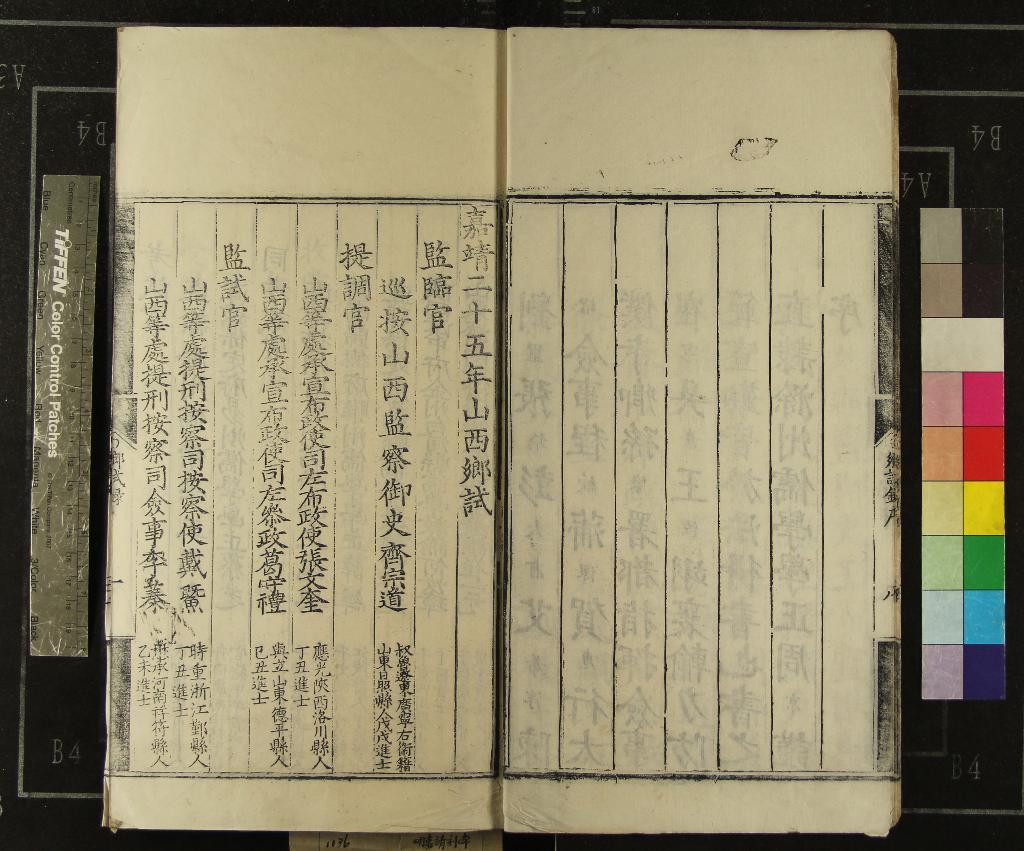 嘉靖二十五年山西鄉試
監臨官
巡按山西監察御史齊宗道
叔魯遼東廣寧右衛籍
山東日照縣人戊戌進士
提調官
山西等處承宣布政使司左布政使張文奎
應光陝西洛川縣人
丁丑進士
山西等處承宣布政使司左叅政葛守禮
與立山東德平縣人
己丑進士
監試官
山西等處提刑按察司按察使戴鱀
時重浙江鄞縣人
丁丑進士
山西等處提刑按察司僉事李蓁
承河南祥符縣人
乙未進士
鄉試錄序
鄉試錄
TIFFEN Color Control Patches
Blue
Green
Yellow
Red
Magenta
White
3/Color
Black
B4
B4
B4
B4
A4
A3
1136